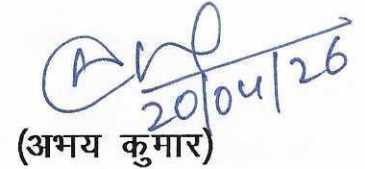 20/04/26
(अभय कुमार)